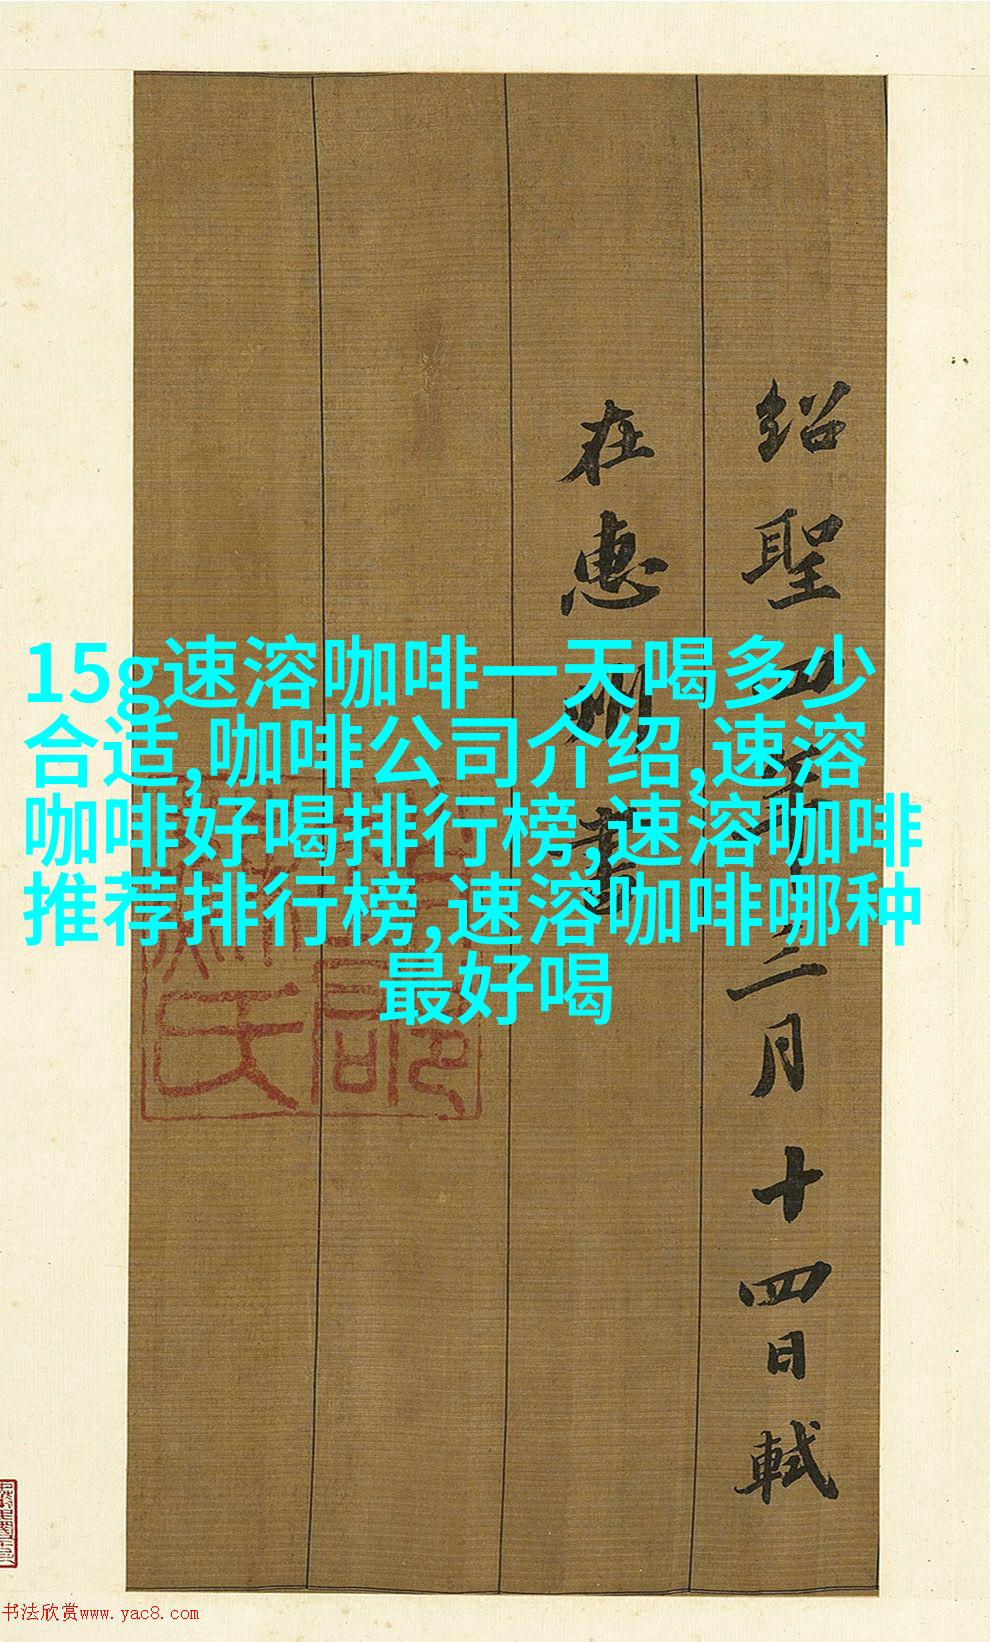 15g速溶咖啡一天喝多少
合适,咖啡公司介绍,速溶
咖啡好喝排行榜,速溶咖啡
推荐排行榜,速溶咖啡哪种
最好喝
紹聖四年二月十四日軾
在惠州書
书法欣赏www.yac8.com